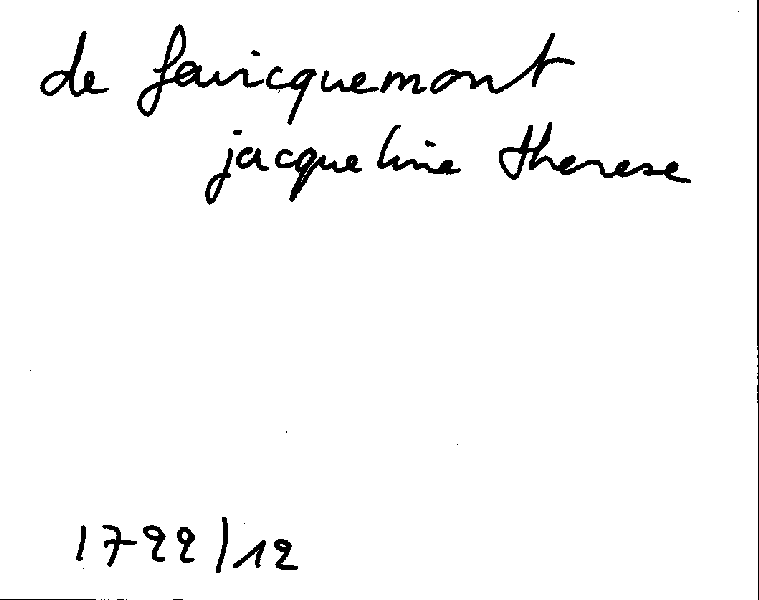 de fauicquemont
jacqueline therese
1722/12